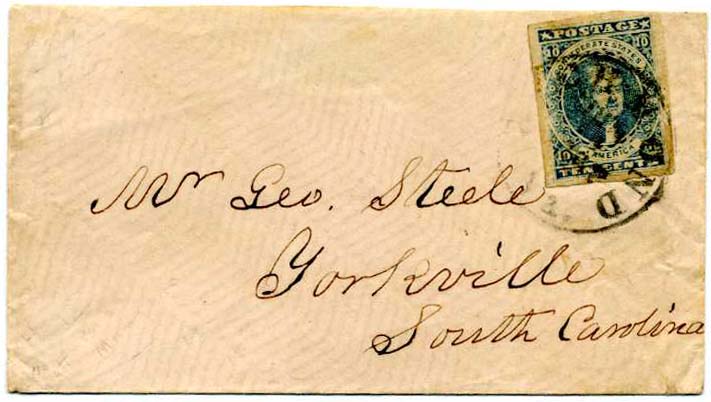 ★POSTAGE★
10 10
CONFEDERATE STATES
OF AMERICA
10 10
TEN CENTS
ND
Mr Geo. Steele
Yorkville
South Carolina